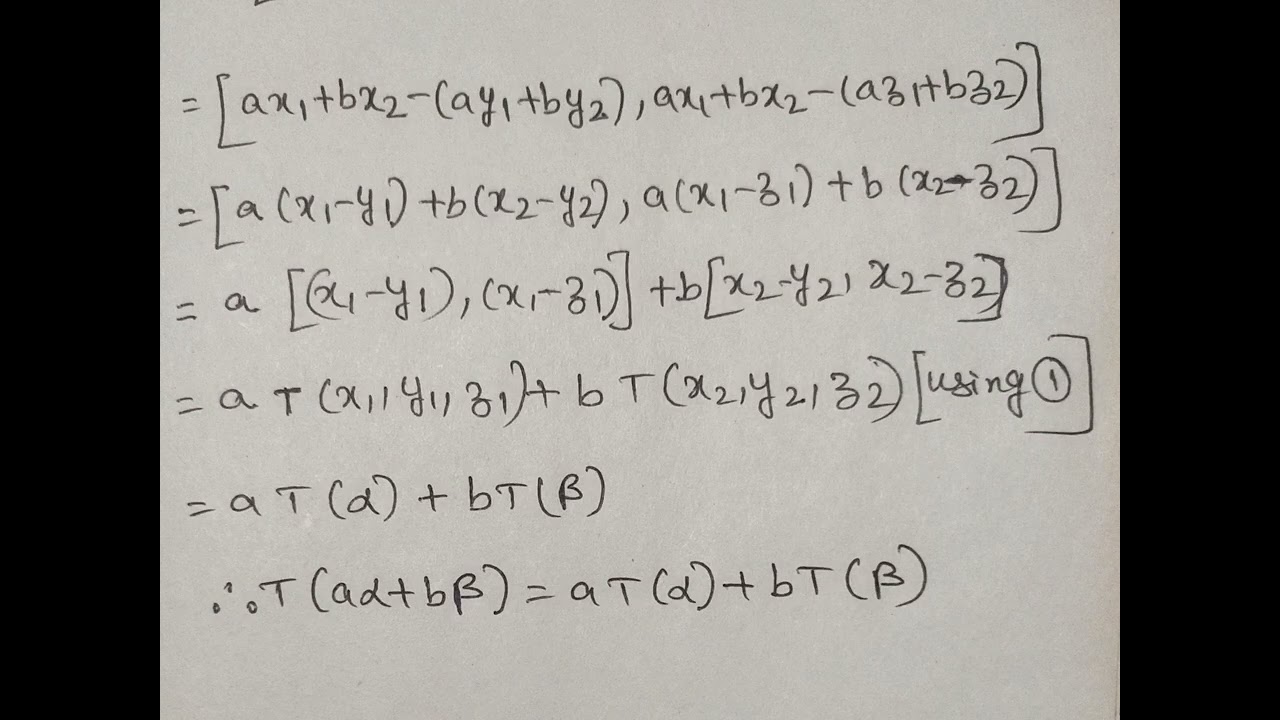 = [ax₁+bx₂-(ay₁+by₂), ax₁+bx₂-(az₁+bz₂)]
= [a(x₁-y₁)+b(x₂-y₂), a(x₁-z₁)+b(x₂-z₂)]
= a [(x₁-y₁), (x₁-z₁)] +b[x₂-y₂, x₂-z₂]
= a T (x₁, y₁, z₁)+ b T (x₂, y₂, z₂) [using ①]
= a T (α) + bT(β)
∴ T (aα+bβ) = aT(α)+bT(β)